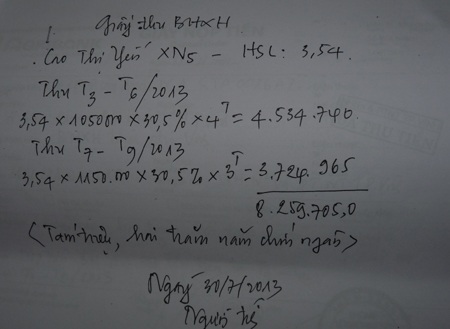 Giấy thu BHXH
Cao Thị Yến XN5 - HSL: 3,54.
Thu T3 - T6/2013
3,54 x 1050.000 x 30,5% x 4T = 4.534.740.
Thu T7 - T9/2013
3,54 x 1150.000 x 30,5% x 3T = 3.724.965
8.259.705,0
(Tám triệu, hai trăm năm chín ngàn)
Ngày 30/7/2013
Người